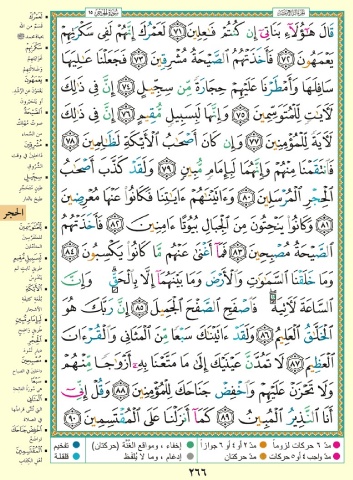 قَالَ هَٰٓؤُلَآءِ بَنَاتِيٓ إِن كُنتُمْ فَٰعِلِينَ ٧١ لَعَمْرُكَ إِنَّهُمْ لَفِي سَكْرَتِهِمْ
يَعْمَهُونَ ٧٢ فَأَخَذَتْهُمُ ٱلصَّيْحَةُ مُشْرِقِينَ ٧٣ فَجَعَلْنَا عَٰلِيَهَا
سَافِلَهَا وَأَمْطَرْنَا عَلَيْهِمْ حِجَارَةً مِّن سِجِّيلٍ ٧٤ إِنَّ فِي ذَٰلِكَ
لَأٓيَٰتٍ لِّلْمُتَوَسِّمِينَ ٧٥ وَإِنَّهَا لَبِسَبِيلٍ مُّقِيمٍ ٧٦ إِنَّ فِي ذَٰلِكَ
لَأٓيَةً لِّلْمُؤْمِنِينَ ٧٧ وَإِن كَانَ أَصْحَٰبُ ٱلْأَيْكَةِ لَظَٰلِمِينَ ٧٨
فَٱنتَقَمْنَا مِنْهُمْ وَإِنَّهُمَا لَبِإِمَامٍ مُّبِينٍ ٧٩ وَلَقَدْ كَذَّبَ أَصْحَٰبُ
ٱلْحِجْرِ ٱلْمُرْسَلِينَ ٨٠ وَءَاتَيْنَٰهُمْ ءَايَٰتِنَا فَكَانُوا۟ عَنْهَا مُعْرِضِينَ
٨١ وَكَانُوا۟ يَنْحِتُونَ مِنَ ٱلْجِبَالِ بُيُوتًا ءَامِنِينَ ٨٢ فَأَخَذَتْهُمُ
ٱلصَّيْحَةُ مُصْبِحِينَ ٨٣ فَمَآ أَغْنَىٰ عَنْهُم مَّا كَانُوا۟ يَكْسِبُونَ ٨٤
وَمَا خَلَقْنَا ٱلسَّمَٰوَٰتِ وَٱلْأَرْضَ وَمَا بَيْنَهُمَآ إِلَّا بِٱلْحَقِّ ۗ وَإِنَّ
ٱلسَّاعَةَ لَأٓتِيَةٌ ۖ فَٱصْفَحِ ٱلصَّفْحَ ٱلْجَمِيلَ ٨٥ إِنَّ رَبَّكَ هُوَ
ٱلْخَلَّٰقُ ٱلْعَلِيمُ ٨٦ وَلَقَدْ ءَاتَيْنَٰكَ سَبْعًا مِّنَ ٱلْمَثَانِي وَٱلْقُرْءَانَ
ٱلْعَظِيمَ ٨٧ لَا تَمُدَّنَّ عَيْنَيْكَ إِلَىٰ مَا مَتَّعْنَا بِهِۦٓ أَزْوَٰجًا مِّنْهُمْ
وَلَا تَحْزَنْ عَلَيْهِمْ وَٱخْفِضْ جَنَاحَكَ لِلْمُؤْمِنِينَ ٨٨ وَقُلْ إِنِّيٓ
أَنَا ٱلنَّذِيرُ ٱلْمُبِينُ ٨٩ كَمَآ أَنزَلْنَا عَلَى ٱلْمُقْتَسِمِينَ ٩٠
الحجر
مدّ ٦ حركات لزوماً مدّ ٢ أو ٤ أو ٦ جوازاً إخفاء، ومواقع الغنّة (حركتان) تفخيم
مدّ واجب ٤ أو ٥ حركات مدّ حركتان إدغام، وما لا يُلفظ قلقلة
٢٦٦